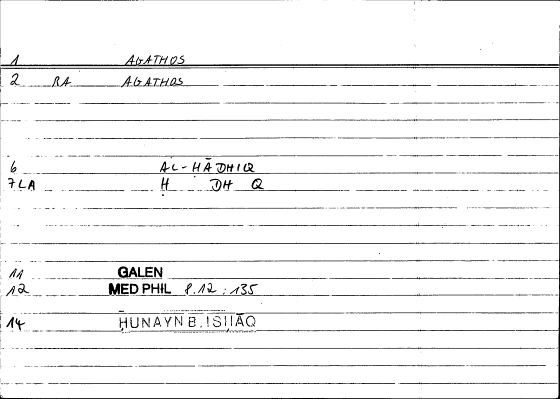 1 AGATHOS
2 RA AGATHOS
6 AL-ḤĀDHIQ
7 LA Ḥ DH Q
11 GALEN
12 MED PHIL 8.12 : 135
14 ḤUNAYN B. ISḤĀQ